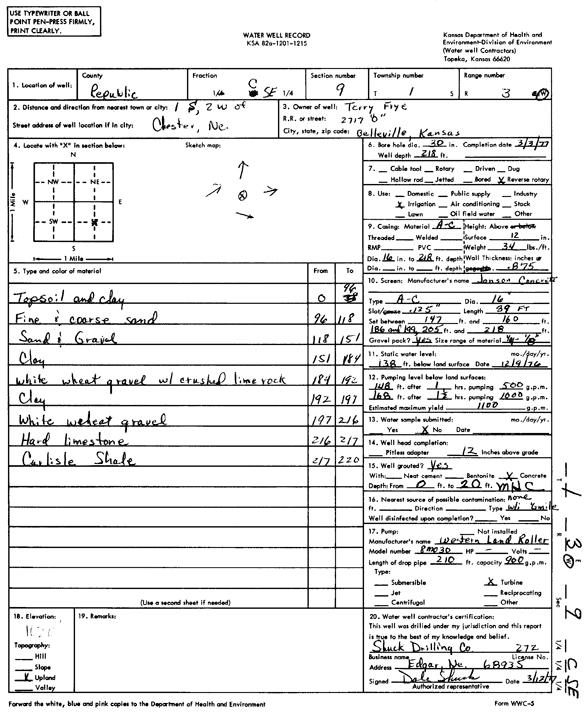 USE TYPEWRITER OR BALL
POINT PEN-PRESS FIRMLY,
PRINT CLEARLY.
WATER WELL RECORD
KSA 82a-1201-1215
Kansas Department of Health and
Environment-Division of Environment
(Water well Contractors)
Topeka, Kansas 66620
1. Location of well:
County
Republic
Fraction
1/4 C SE 1/4
Section number
9
Township number
T 1 S
Range number
R 3 E/W
2. Distance and direction from nearest town or city: 1 S, 2 W of
Street address of well location if in city: Chester, Ne.
3. Owner of well: Terry Frye
R.R. or street: 2717 "O"
City, state, zip code: Belleville, Kansas
4. Locate with "X" in section below:
Sketch map:
N
NW NE
W E
SW
S
1 Mile
1 Mile
6. Bore hole dia. 30 in. Completion date 3/3/77
Well depth 218 ft.
7. Cable tool Rotary Driven Dug
Hollow rod Jetted Bored X Reverse rotary
8. Use: Domestic Public supply Industry
X Irrigation Air conditioning Stock
Lawn Oil field water Other
9. Casing: Material A-C Height: Above or below
Threaded Welded Surface 12 in.
RMP PVC Weight 34 lbs./ft.
Dia. 16 in. to 218 ft. depth Wall Thickness: inches or
Dia. in. to ft. depth .875
10. Screen: Manufacturer's name Janson Concrete
Type A-C Dia. 16"
Slot/gauze .125" Length 39 FT
Set between 147 ft. and 160 ft.
186 and 199, 205 ft. and 218 ft.
Gravel pack? Yes Size range of material
11. Static water level: mo./day/yr.
138 ft. below land surface Date 12/9/76
12. Pumping level below land surfaces:
148 ft. after 1 hrs. pumping 500 g.p.m.
168 ft. after 1½ hrs. pumping 1000 g.p.m.
Estimated maximum yield 1100 g.p.m.
13. Water sample submitted: mo./day/yr.
Yes X No Date
14. Well head completion:
Pitless adapter 12 Inches above grade
15. Well grouted? Yes
With: Neat cement Bentonite X Concrete
Depth: From 0 ft. to 20 ft. MNC
16. Nearest source of possible contamination: none
ft. Direction Type w/i ¼mile
Well disinfected upon completion? Yes No
17. Pump: Not installed
Manufacturer's name Western Land Roller
Model number 8M030 HP - Volts -
Length of drop pipe 210 ft. capacity 900 g.p.m.
Type:
Submersible X Turbine
Jet Reciprocating
Centrifugal Other
5. Type and color of material From To
Topsoil and clay 0 96
Fine & coarse sand 96 118
Sand & Gravel 118 151
Clay 151 184
White wheat gravel w/ crushed limerock 184 192
Clay 192 197
White wheat gravel 197 216
Hard limestone 216 217
Carlisle Shale 217 220
(Use a second sheet if needed)
18. Elevation:
Topography:
Hill
Slope
X Upland
Valley
19. Remarks:
20. Water well contractor's certification:
This well was drilled under my jurisdiction and this report
is true to the best of my knowledge and belief.
Shuck Drilling Co. 272
Business name License No.
Address Edgar, Ne. 68935
Signed Dale Shuck Date 3/12/77
Authorized representative
Forward the white, blue and pink copies to the Department of Health and Environment
Form WWC-5
T 1
R 3 W
Sec 9
1/4 1/4 1/4 C SE